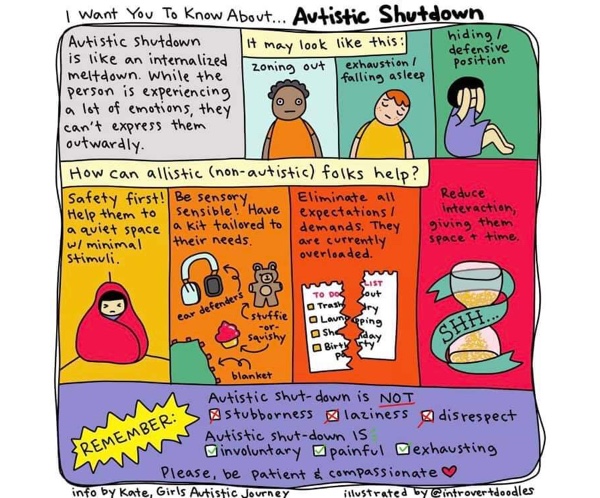 I Want You To Know About... Autistic Shutdown
Autistic shutdown
is like an internalized
meltdown. While the
person is experiencing
a lot of emotions, they
can't express them
outwardly.
It may look like this:
zoning out
exhaustion/
falling asleep
hiding/
defensive
position
How can allistic (non-autistic) folks help?
Safety first!
Help them to
a quiet space
w/ minimal
stimuli.
Be sensory
sensible! Have
a kit tailored to
their needs.
ear defenders
stuffie
-or-
squishy
blanket
Eliminate all
expectations/
demands. They
are currently
overloaded.
TO DO LIST
Trash out
Laundry
Shopping
Birthday
party
Reduce
interaction,
giving them
space + time.
SHH...
REMEMBER:
Autistic shut-down is NOT
stubborness laziness disrespect
Autistic shut-down IS:
involuntary painful exhausting
Please, be patient & compassionate
info by Kate, Girls Autistic Journey
illustrated by @introvertdoodles